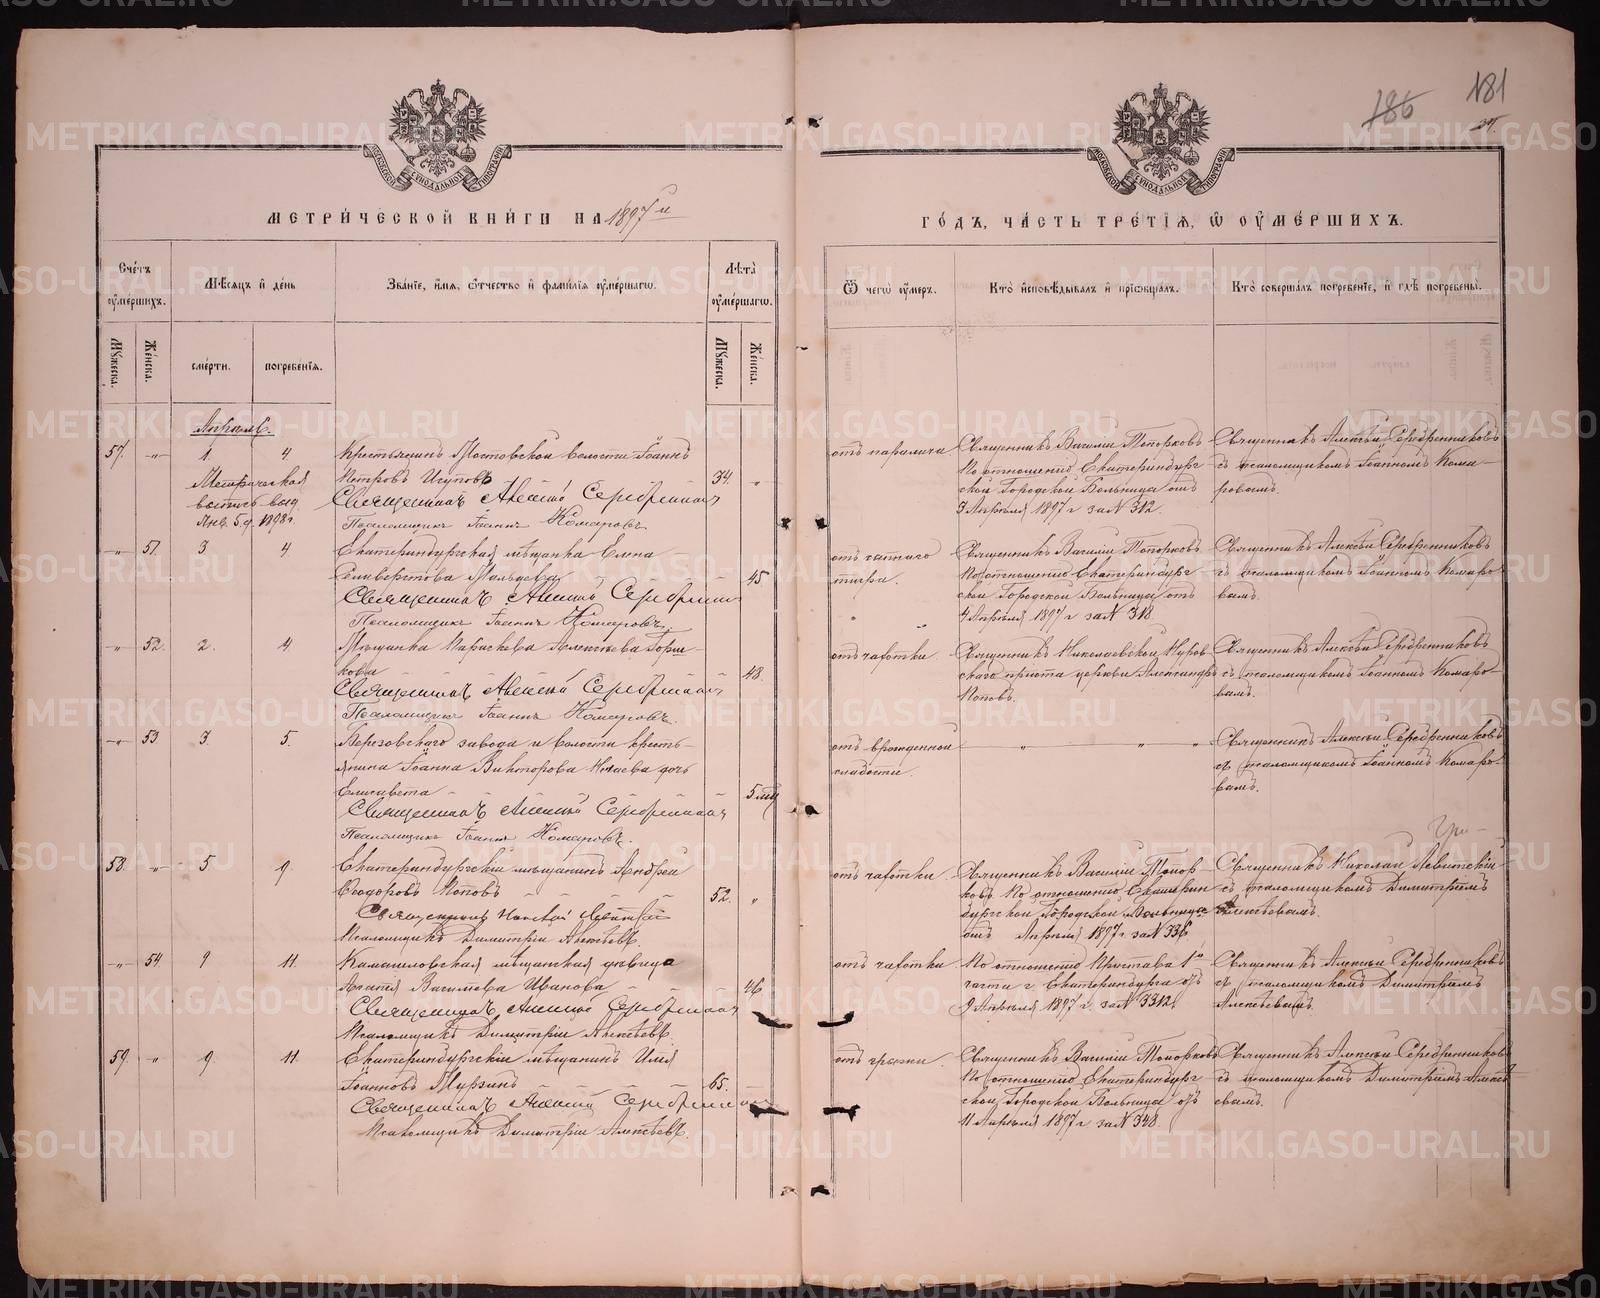 186
181
27.
МОСКОВСКОЙ СУНОДАЛЬНОЙ ТИПОГРАФІИ
МОСКОВСКОЙ СУНОДАЛЬНОЙ ТИПОГРАФІИ
МЕТРИ́ЧЕСКОЙ КНИ́ГИ НА 1897 й
ГО́ДЪ, ЧА́СТЬ ТРЕ́ТІѦ, Ѿ ОУМЕ́РШИХЪ.
Сче́тъ оуме́ршихъ.
Мѣ́сѧцъ и҆ де́нь
Зва́нїе, и҆́мѧ, ѻ҆́тчество и҆ фами́лїѧ оуме́ршагѡ.
Лѣта̀ оуме́ршагѡ.
Ѿ чегѡ̀ оу́меръ.
Кто̀ и҆сповѣ́дывалъ и҆ прїѡбща́лъ.
Кто̀ соверша́лъ погребе́нїе, и҆ гдѣ̀ погребены̀.
Мꙋ́жеска.
Же́нска.
сме́рти.
погребе́нїѧ.
Мꙋ́жеска.
Же́нска.
Апрель.
57. " 1. 4.
Крестьянинъ Мостовской волости Іоаннъ
Петровъ Игуповъ
34. "
Священникъ Алексій Серебренниковъ
Псаломщикъ Іоаннъ Комаровъ
Метрическая
выпись выд.
Янв. 5 д. 1898 г.
отъ паралича
Священникъ Василій Топорковъ
По отношенію Екатеринбург
ской Городской Больницы отъ
3 Апреля 1897 г за № 312.
Священникъ Алексѣй Серебренниковъ
съ псаломщикомъ Іоанномъ Кома-
ровымъ.
" 51. 3 4.
Екатеринбургская мѣщанка Елена
Селивертова Мальцева
45
Священникъ Алексій Серебренник
Псаломщикъ Іоаннъ Комаровъ.
отъ
тифа.
Священникъ Василій Топорковъ
По отношенію Екатеринбург
ской Городской Больницы отъ
4 Апреля 1897 г за № 318.
Священникъ Алексѣй Серебренниковъ
съ псаломщикомъ Іоанномъ Комаро-
вымъ.
" 52. 2. 4.
Мѣщанка Параскева Алексѣева Горш-
кова
48.
Священникъ Алексій Серебренников
Псаломщикъ Іоаннъ Комаровъ.
отъ чахотки.
Священникъ Николаевской Нуров
скаго приюта церкви Александръ
Поповъ.
Священникъ Алексѣй Серебренниковъ
съ псаломщикомъ Іоанномъ Комаро-
вымъ.
" 53 3. 5.
Березовскаго завода и волости кресть-
янина Іоанна Викторова Нечаева дочь
Елисавета
5 мц
Священникъ Алексій Серебренников
Псаломщикъ Іоаннъ Комаровъ.
отъ врожденной
слабости.
" " "
Священникъ Алексѣй Серебренниковъ
съ псаломщикомъ Іоанномъ Комаро-
вымъ.
58. " 5 9.
Екатеринбургскій мѣщанинъ Андрей
Ѳеодоровъ Поповъ
52. "
Священникъ Николай Левитскій
Псаломщикъ Димитрій Алексѣевъ.
отъ чахотки.
Священникъ Василій Топор-
ковъ По отношенію Екатерин
бургской Городской Больницы
отъ Апреля 1897 г. за № 336
Священникъ Николай Левитскій
съ псаломщикомъ Димитріемъ
Алексѣевымъ.
" 54. 9 11.
Камышловская мѣщанская дѣвица
Агапія Васильева Иванова
46
Священникъ Алексій Серебренников
Псаломщикъ Димитрій Алексѣевъ.
отъ чахотки
По отношенію Пристава 1й
части г. Екатеринбурга отъ
9 Апреля 1897 г. за № 3312.
Священникъ Алексѣй Серебренниковъ
съ псаломщикомъ Димитріемъ
Алексѣевымъ.
59. " 9 11.
Екатеринбургскій мѣщанинъ Илія
Іоанновъ Мурзинъ
65.
Священникъ Алексій Серебренников
Псаломщикъ Димитрій Алексѣевъ.
отъ грыжи.
Священникъ Василій Топорковъ
По отношенію Екатеринбург
ской Городской Больницы отъ
11 Апреля 1897 г за № 348.
Священникъ Алексѣй Серебренниковъ
съ псаломщикомъ Димитріемъ Алексѣ
евымъ.
METRIKI.GASO-URAL.RU